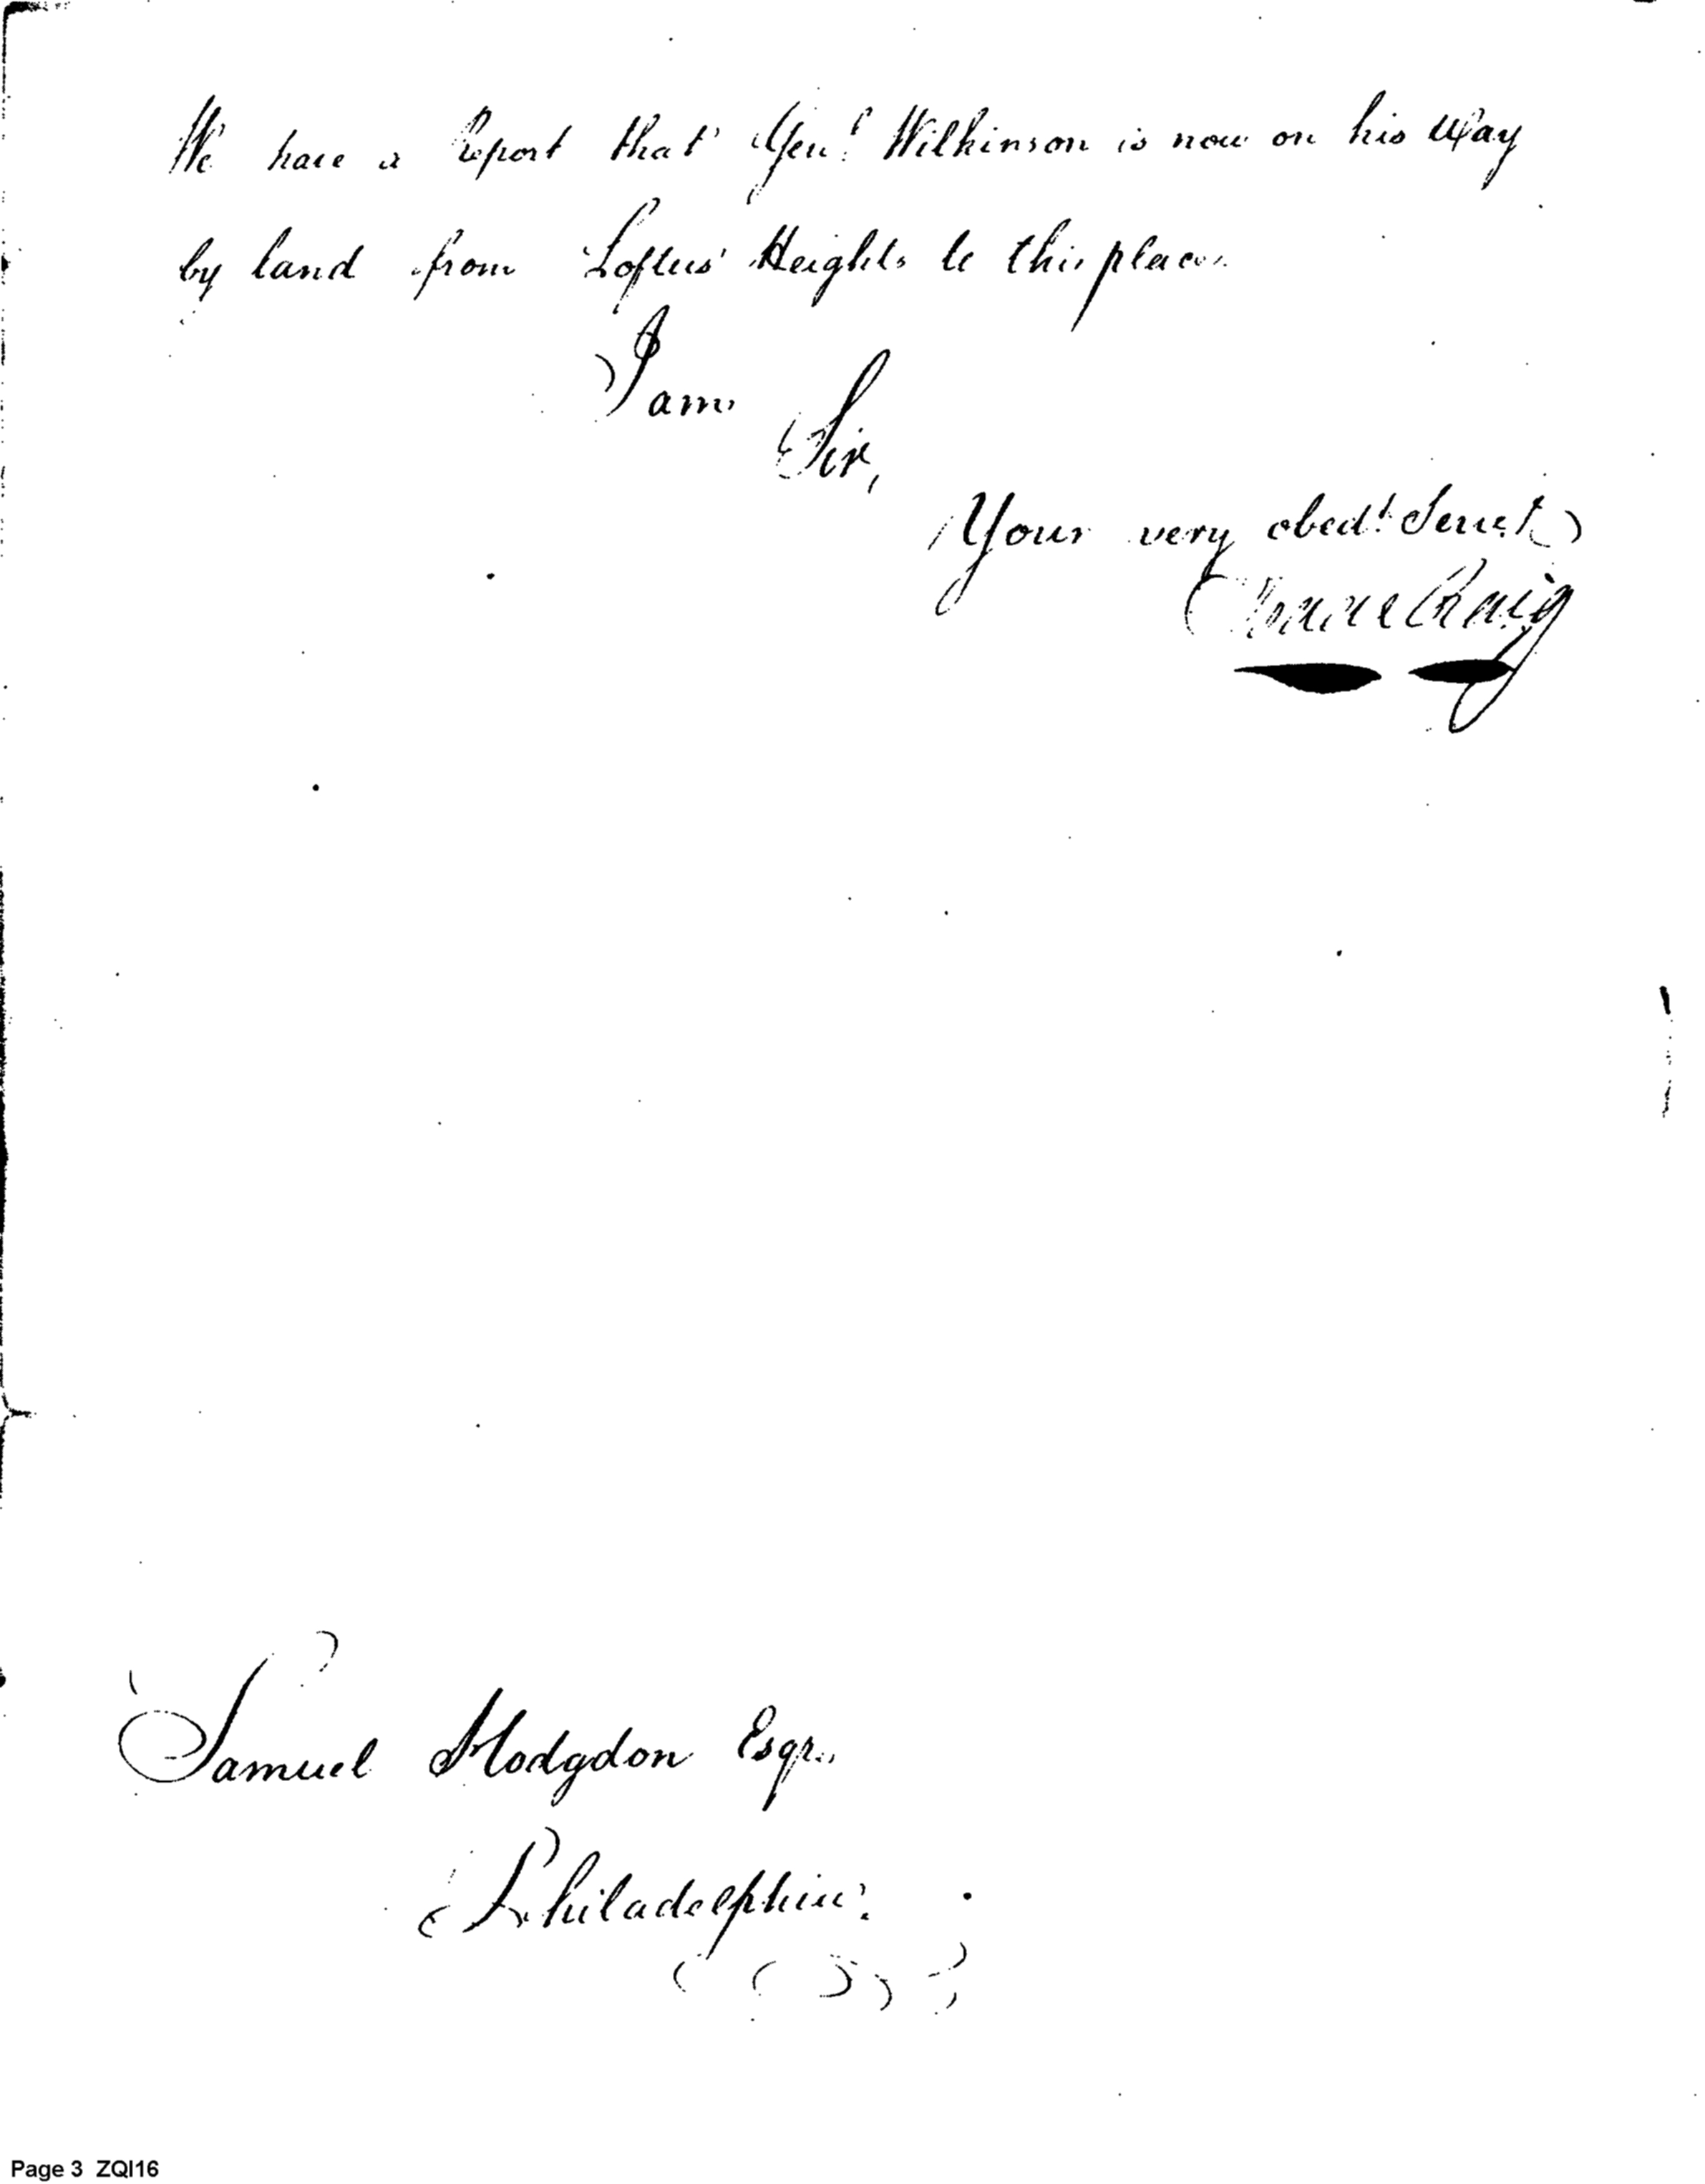 We have a Report that Genl Wilkinson is now on his Way
by land from Loftus' Heights to this place.
I am
Sir,
Your very obedt. Servt.
Craig
Samuel Hodgdon Esqr.
Philadelphia.
Page 3 ZQI16